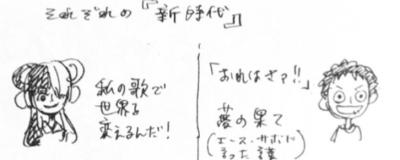 それぞれの『新時代』
私の歌で
世界を
変えるんだ!
「おれはさァ!!」
夢の果て
(エース・サボに
言った議)